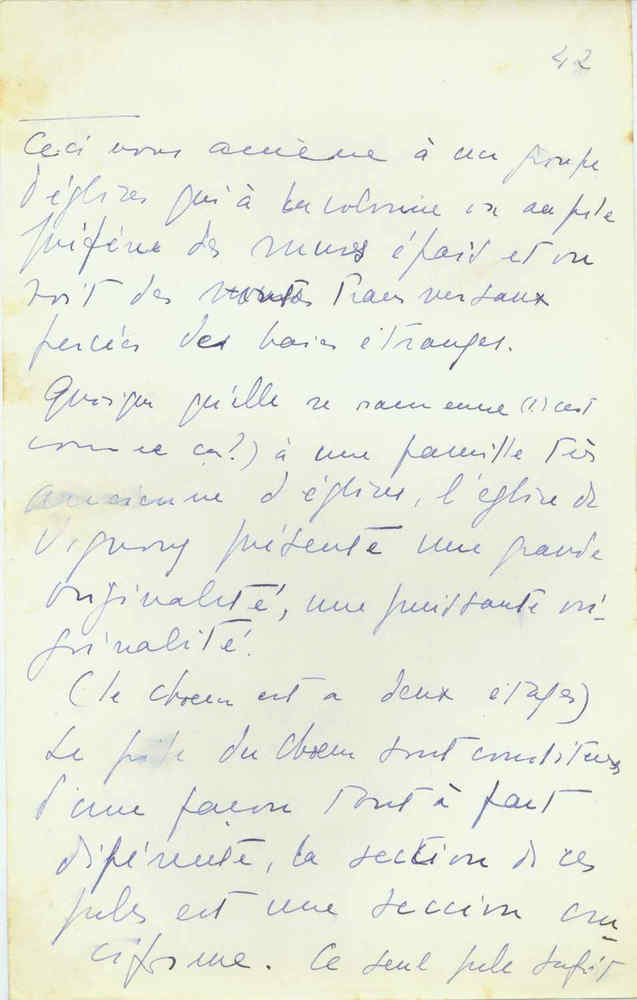 42
Ceci nous amène à un groupe
d'églises qui à la colonne ou au pile
préfère des murs épais et on
voit des murs transversaux
percées des baies étranges.
Quoique qu'elle se ramenne (!) c'est
comme ça?) à une famille très
ancienne d'églises, l'église de
Vignory présente une grande
originalité, une puissante ori-
ginalité.
(le chœur est a deux étages)
Le pile du chœur sont constitues
d'une façon tout à fait
différente, la section de ces
piles est une section cru-
ciforme. Ce seul pile suffit